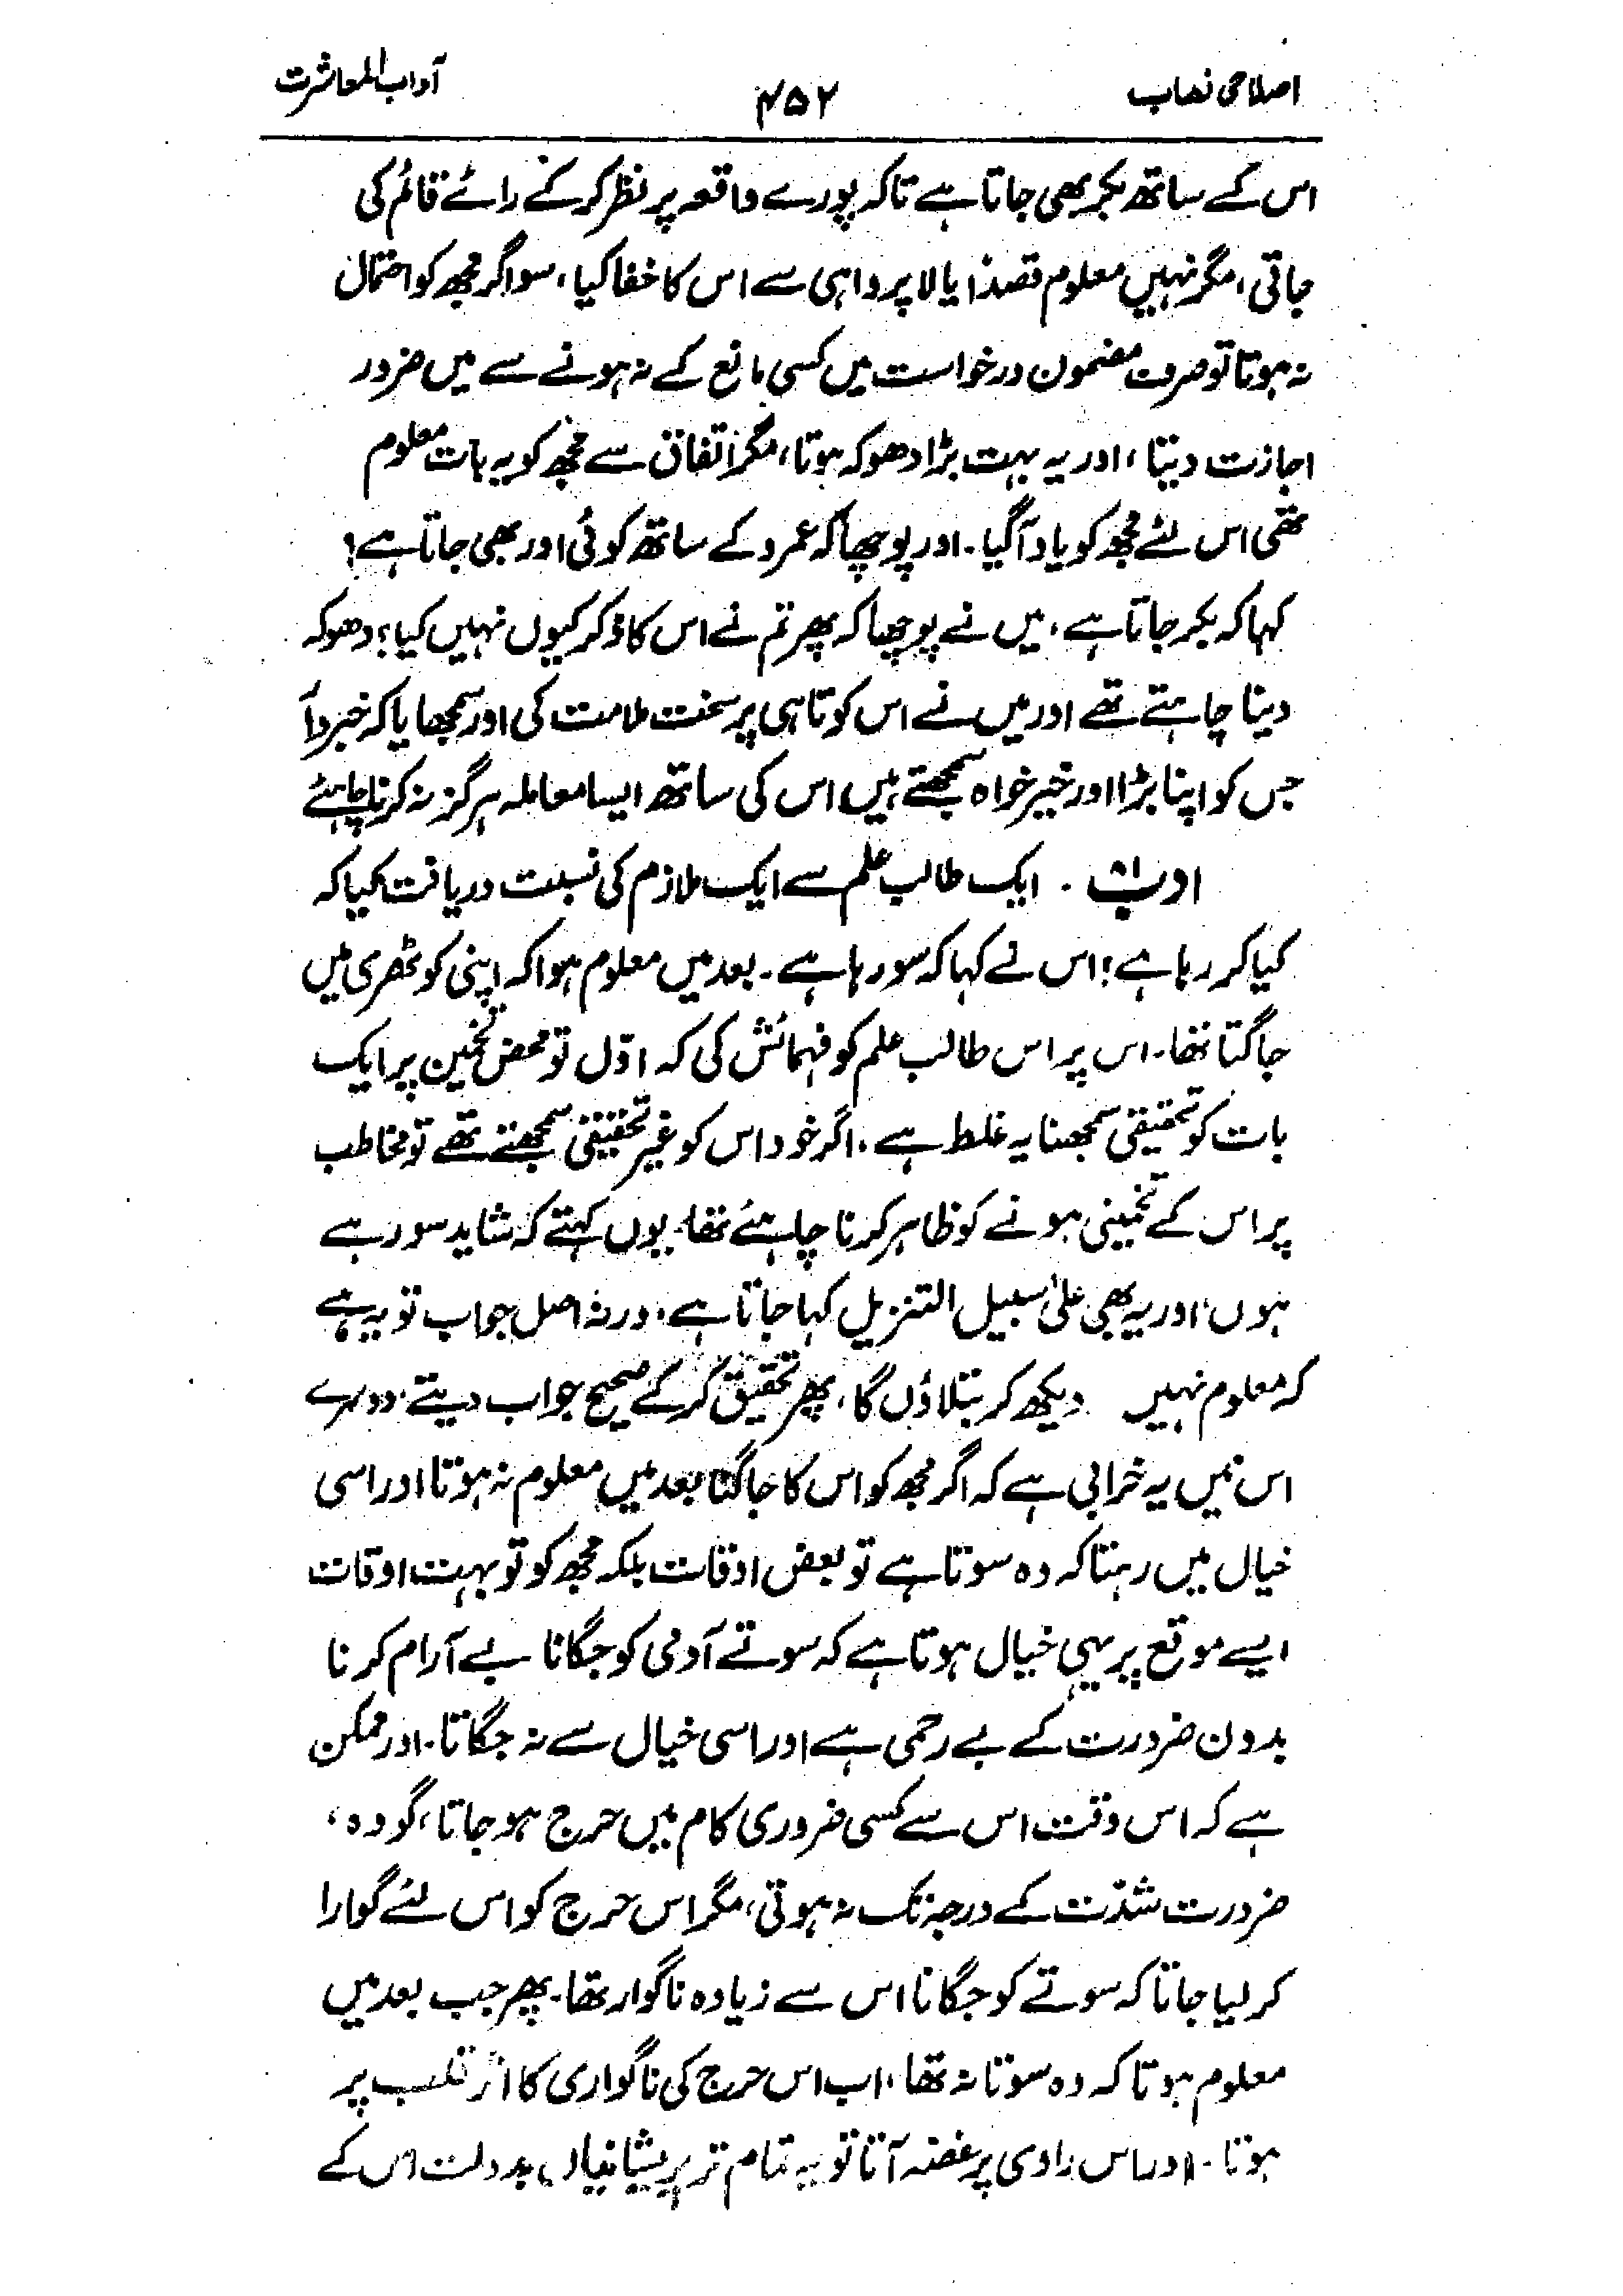 اصلاحی نصاب ۴۵۲ آداب المعاشرت
اس کے ساتھ بکر بھی جاتا ہے تاکہ پورے واقعہ پر نظر کر کے رائے قائم کی
جاتی، مگر نہیں معلوم قصدًا یا لاپرواہی سے اس کا خفا کیا، سو اگر مجھ کو احتمال
نہ ہوتا تو صرف مضمون درخواست میں کسی مانع کے نہ ہونے سے میں ضرور
اجازت دیتا، اور یہ بہت بڑا دھوکہ ہوتا، مگر اتفاق سے مجھ کو یہ بات معلوم
تھی اس لئے مجھ کو یاد آگیا۔ اور پوچھا کہ عمرو کے ساتھ کوئی اور بھی جاتا ہے؟
کہا کہ بکر جاتا ہے، میں نے پوچھا کہ پھر تم نے اس کا ذکر کیوں نہیں کیا؟ دھوکہ
دینا چاہتے تھے اور میں نے اس کوتاہی پر سخت ملامت کی اور سمجھایا کہ خبردار
جس کو اپنا بڑا اور خیر خواہ سمجھتے ہیں اس کی ساتھ ایسا معاملہ ہرگز نہ کرنا چاہئے
ادب . ایک طالب علم سے ایک ملازم کی نسبت دریافت کیا کہ
کیا کر رہا ہے؟ اس نے کہا کہ سو رہا ہے۔ بعد میں معلوم ہوا کہ اپنی کوٹھری میں
جاگتا تھا۔ اس پر اس طالب علم کو فہمائش کی کہ اوّل تو محض تخمین پر ایک
بات کو تحقیقی سمجھنا یہ غلط ہے، اگر خود اس کو غیر تحقیقی سمجھتے تھے تو مخاطب
پر اس کے تخمینی ہونے کو ظاہر کرنا چاہئے تھا۔ یوں کہتے کہ شاید سو رہے
ہوں، اور یہ بھی علیٰ سبیل التنزیل کہا جاتا ہے، ورنہ اصل جواب تو یہ ہے
کہ معلوم نہیں دیکھ کر بتلاؤں گا، پھر تحقیق کر کے صحیح جواب دیتے، دوسرے
اس میں یہ خرابی ہے کہ اگر مجھ کو اس کا جاگنا بعد میں معلوم نہ ہوتا اور اسی
خیال میں رہتا کہ وہ سوتا ہے تو بعض اوقات بلکہ مجھ کو تو بہت اوقات
ایسے موقع پر یہی خیال ہوتا ہے کہ سوتے آدمی کو جگانا بے آرام کرنا
بدون ضرورت کے بے رحمی ہے اور اسی خیال سے نہ جگاتا۔ اور ممکن
ہے کہ اس وقت اس سے کسی ضروری کام میں حرج ہو جاتا، گو وہ،
ضرورت شدّت کے درجہ تک نہ ہوتی، مگر اس حرج کو اس لئے گوارا
کر لیا جاتا کہ سوتے کو جگانا اس سے زیادہ ناگوار تھا۔ پھر جب بعد میں
معلوم ہوتا کہ وہ سوتا نہ تھا، اب اس حرج کی ناگواری کا اثر قلب پر
ہوتا۔ اور اس راوی پر غصّہ آتا تو یہ تمام تر پریشانیاں بدولت اس کے